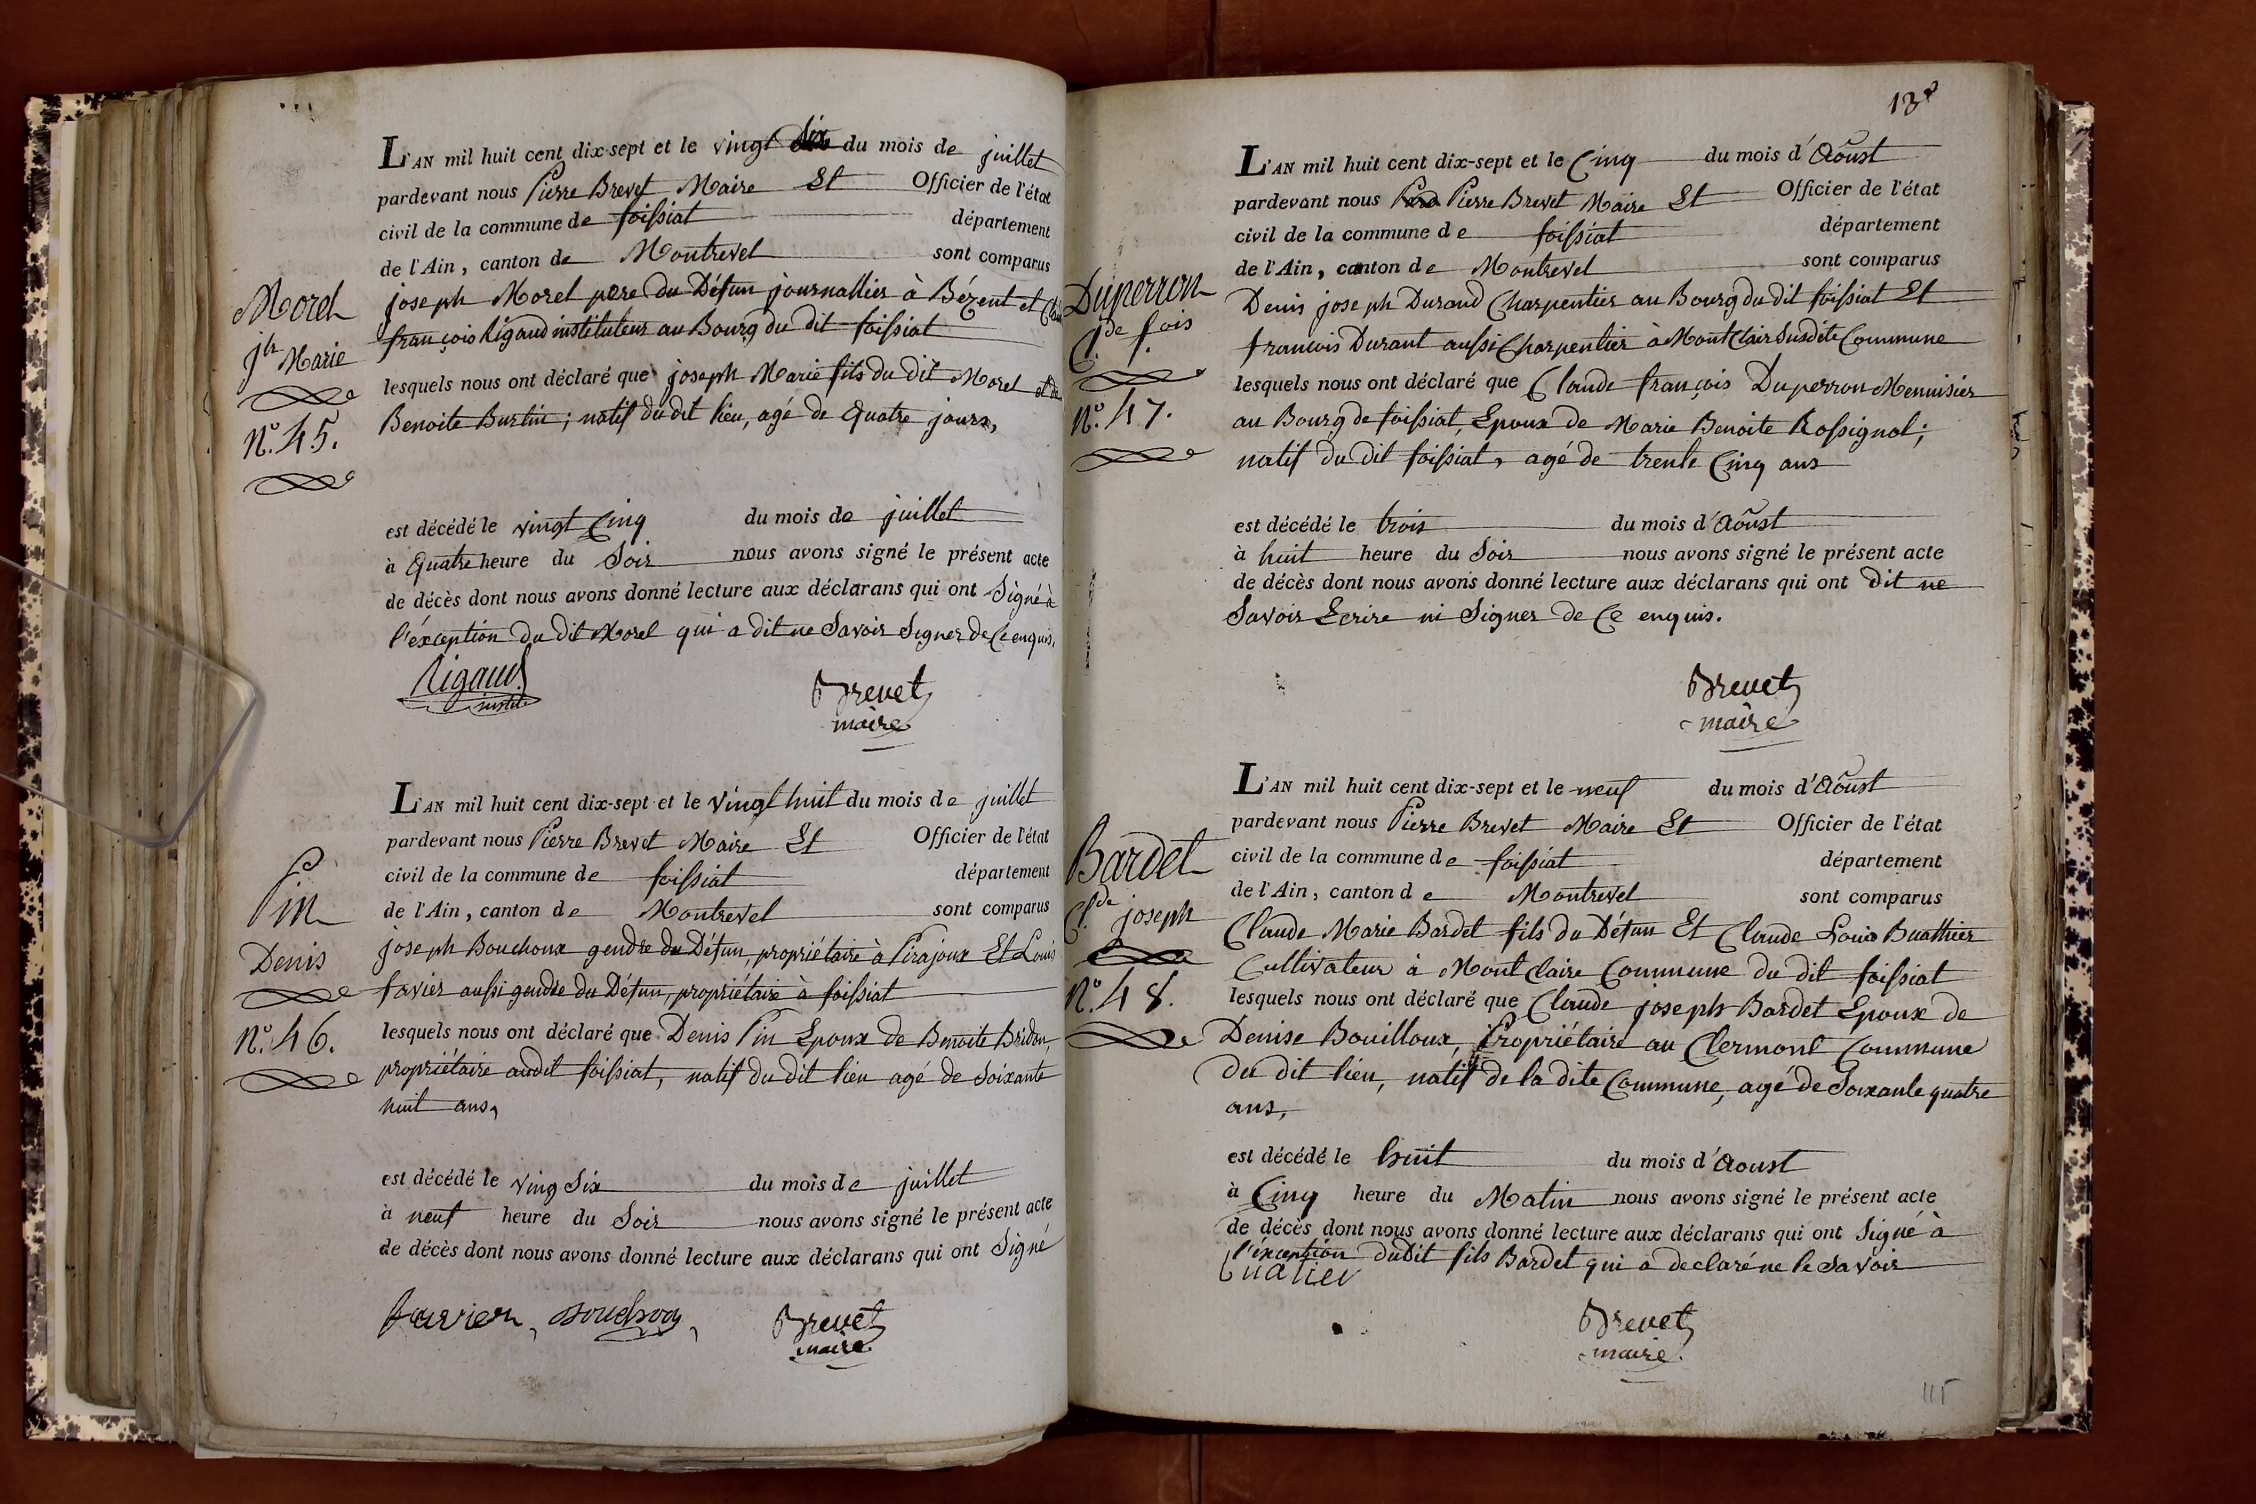 L'AN mil huit cent dix-sept et le vingt six du mois de juillet
pardevant nous Pierre Brevet Maire Et Officier de l'état
civil de la commune de foissiat département
de l'Ain, canton de Montrevel sont comparus
Morel
joseph Morel pere du Défun journallier à Bézent et
françois Rigaud instituteur au Bourg du dit foissiat
jh Marie
lesquels nous ont déclaré que joseph Marie fils du dit Morel et de
Benoite Burtin; natif du dit lieu, agé de Quatre jours,
N.º 45.
est décédé le vingt Cinq du mois de juillet
à Quatre heure du Soir nous avons signé le présent acte
de décès dont nous avons donné lecture aux déclarans qui ont Signé à
l'éxception du dit Morel qui a dit ne Savoir Signer de Ce enquis.
Rigaud
instit
Brevet
maire
L'AN mil huit cent dix-sept et le vingt huit du mois de juillet
pardevant nous Pierre Brevet Maire Et Officier de l'état
civil de la commune de foissiat département
Pin
de l'Ain, canton de Montrevel sont comparus
joseph Bouchoux gendre du Défun, propriétaire à Pirajoux Et Louis
Denis
favier aussi gendre du Défun, propriétaire à foissiat
N.º 46.
lesquels nous ont déclaré que Denis Pin Epoux de Benoite Bridon,
propriétaire audit foissiat, natif du dit lieu agé de Soixante
huit ans,
est décédé le ving Six du mois de juillet
à neuf heure du Soir nous avons signé le présent acte
de décès dont nous avons donné lecture aux déclarans qui ont Signé
favier, Bouchoux,
Brevet
maire
L'AN mil huit cent dix-sept et le Cinq du mois d'Aôust
pardevant nous Pierre Brevet Maire Et Officier de l'état
civil de la commune de foissiat département
de l'Ain, canton de Montrevel sont comparus
Duperron
Denis joseph Durand Charpentier au Bourg du dit foissiat Et
C.de f.ois
françois Durant aussi Charpentier à Mont Clair Susdite Commune
lesquels nous ont déclaré que Claude françois Duperron Menuisier
N.º 47.
au Bourg de foissiat, Epoux de Marie Benoite Rossignol;
natif du dit foissiat, agé de trente Cinq ans
est décédé le trois du mois d'Aôust
à huit heure du Soir nous avons signé le présent acte
de décès dont nous avons donné lecture aux déclarans qui ont dit ne
Savoir Ecrire ni Signer de Ce enquis.
Brevet
maire
L'AN mil huit cent dix-sept et le neuf du mois d'Aôust
pardevant nous Pierre Brevet Maire Et Officier de l'état
Bardet
civil de la commune de foissiat département
de l'Ain, canton de Montrevel sont comparus
C.de joseph
Claude Marie Bardet fils du Défun Et Claude Louis Buathier
Cultivateur à Mont Claire Commune du dit foissiat
N.º 48.
lesquels nous ont déclaré que Claude joseph Bardet Epoux de
Denise Bouilloux, Propriétaire au Clermont Commune
du dit lieu, natif de la dite Commune, agé de Soixante quatre
ans,
est décédé le huit du mois d'Aoust
à Cinq heure du Matin nous avons signé le présent acte
de décès dont nous avons donné lecture aux déclarans qui ont Signé à
l'éxception dudit fils Bardet qui a declaré ne le Savoir
Brevet
maire
115